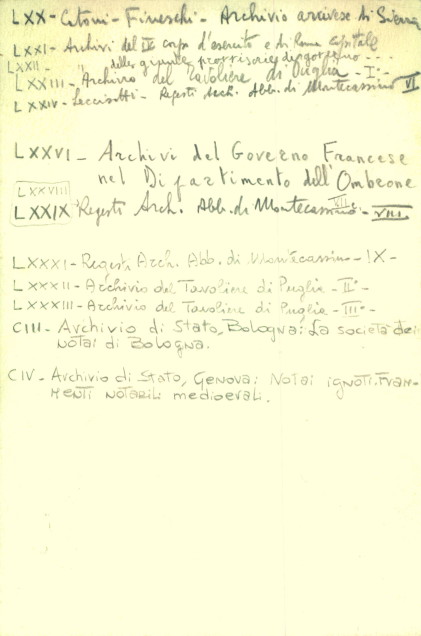 LXX - Catoni - Fineschi - Archivio arcives. di Siena
LXXI - Archivi del IV corpo d'esercito e di Roma capitale
LXXII - delle giunte provvisorie di governo - - -
LXXIII - Archivio del Tavoliere di Puglia - I° -
LXXIV - Leccisotti - Regesti Arch. Abb. di Montecassino VI
LXXVI - Archivi del Governo Francese
nel Dipartimento dell'Ombrone
LXXVIII
LXXIX Regesti Arch. Abb. di Montecassino - VII - VIII
LXXXI - Regesti Arch. Abb. di Montecassino - IX -
LXXXII - Archivio del Tavoliere di Puglia - II° -
LXXXIII - Archivio del Tavoliere di Puglia - III° -
CIII - Archivio di Stato, Bologna: La società dei
notai di Bologna.
CIV - Archivio di Stato, Genova: Notai ignoti. Fram-
menti notarili medioevali.